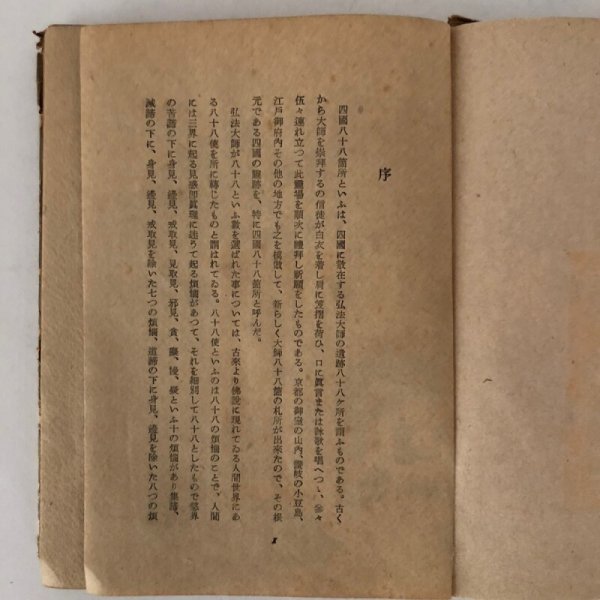 序
四國八十八箇所といふは、四國に散在する弘法大師の遺跡八十八ケ所を謂ふものである。古く
から大師を崇拜するの信徒が白衣を着し肩に笈摺を荷ひ、口に眞言または詠歌を唱へつゝ、參々
伍々連れ立つて此靈場を順次に禮拜し祈願をしたものである。京都の御室の山内、讃岐の小豆島、
江戸御府内その他の地方でも之を模倣して、新らしく大師八十八箇の札所が出來たので、その根
元である四國の靈跡を、特に四國八十八箇所と呼んだ。
弘法大師が八十八といふ數を選ばれた事については、古來より佛説に現れてゐる人間世界にあ
る八十八使を所に轉じたものと謂はれてゐる。八十八使といふのは八十八の煩惱のことで、人間
には三界に起る見惑即眞理に迷うて起る煩惱があつて、それを細別して八十八としたもので慾界
の苦諦の下に、身見、邊見、戒取見、見取見、邪見、貪、瞋、慢、癡といふ十の煩惱があり集諦、
滅諦の下に、身見、邊見、戒取見を除いた七つの煩惱、道諦の下に身見、邊見を除いた八つの煩
1